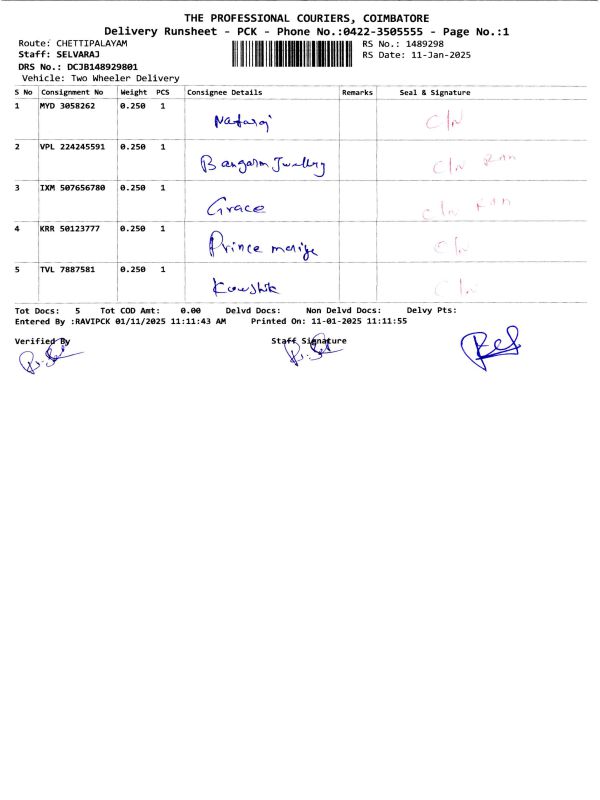 THE PROFESSIONAL COURIERS, COIMBATORE
Delivery Runsheet - PCK - Phone No.:0422-3505555 - Page No.:1
Route: CHETTIPALAYAM RS No.: 1489298
Staff: SELVARAJ RS Date: 11-Jan-2025
DRS No.: DCJB148929801
Vehicle: Two Wheeler Delivery
S No Consignment No Weight PCS Consignee Details Remarks Seal & Signature
1 MYD 3058262 0.250 1
Nataraj C/N
2 VPL 224245591 0.250 1
Bangarm Jwellry C/N
3 IXM 507656780 0.250 1
Grace C/N
4 KRR 50123777 0.250 1
Prince C/N
5 TVL 7887581 0.250 1
Kowshik C/N
Tot Docs: 5 Tot COD Amt: 0.00 Delvd Docs: Non Delvd Docs: Delvy Pts:
Entered By :RAVIPCK 01/11/2025 11:11:43 AM Printed On: 11-01-2025 11:11:55
Verified By Staff Signature